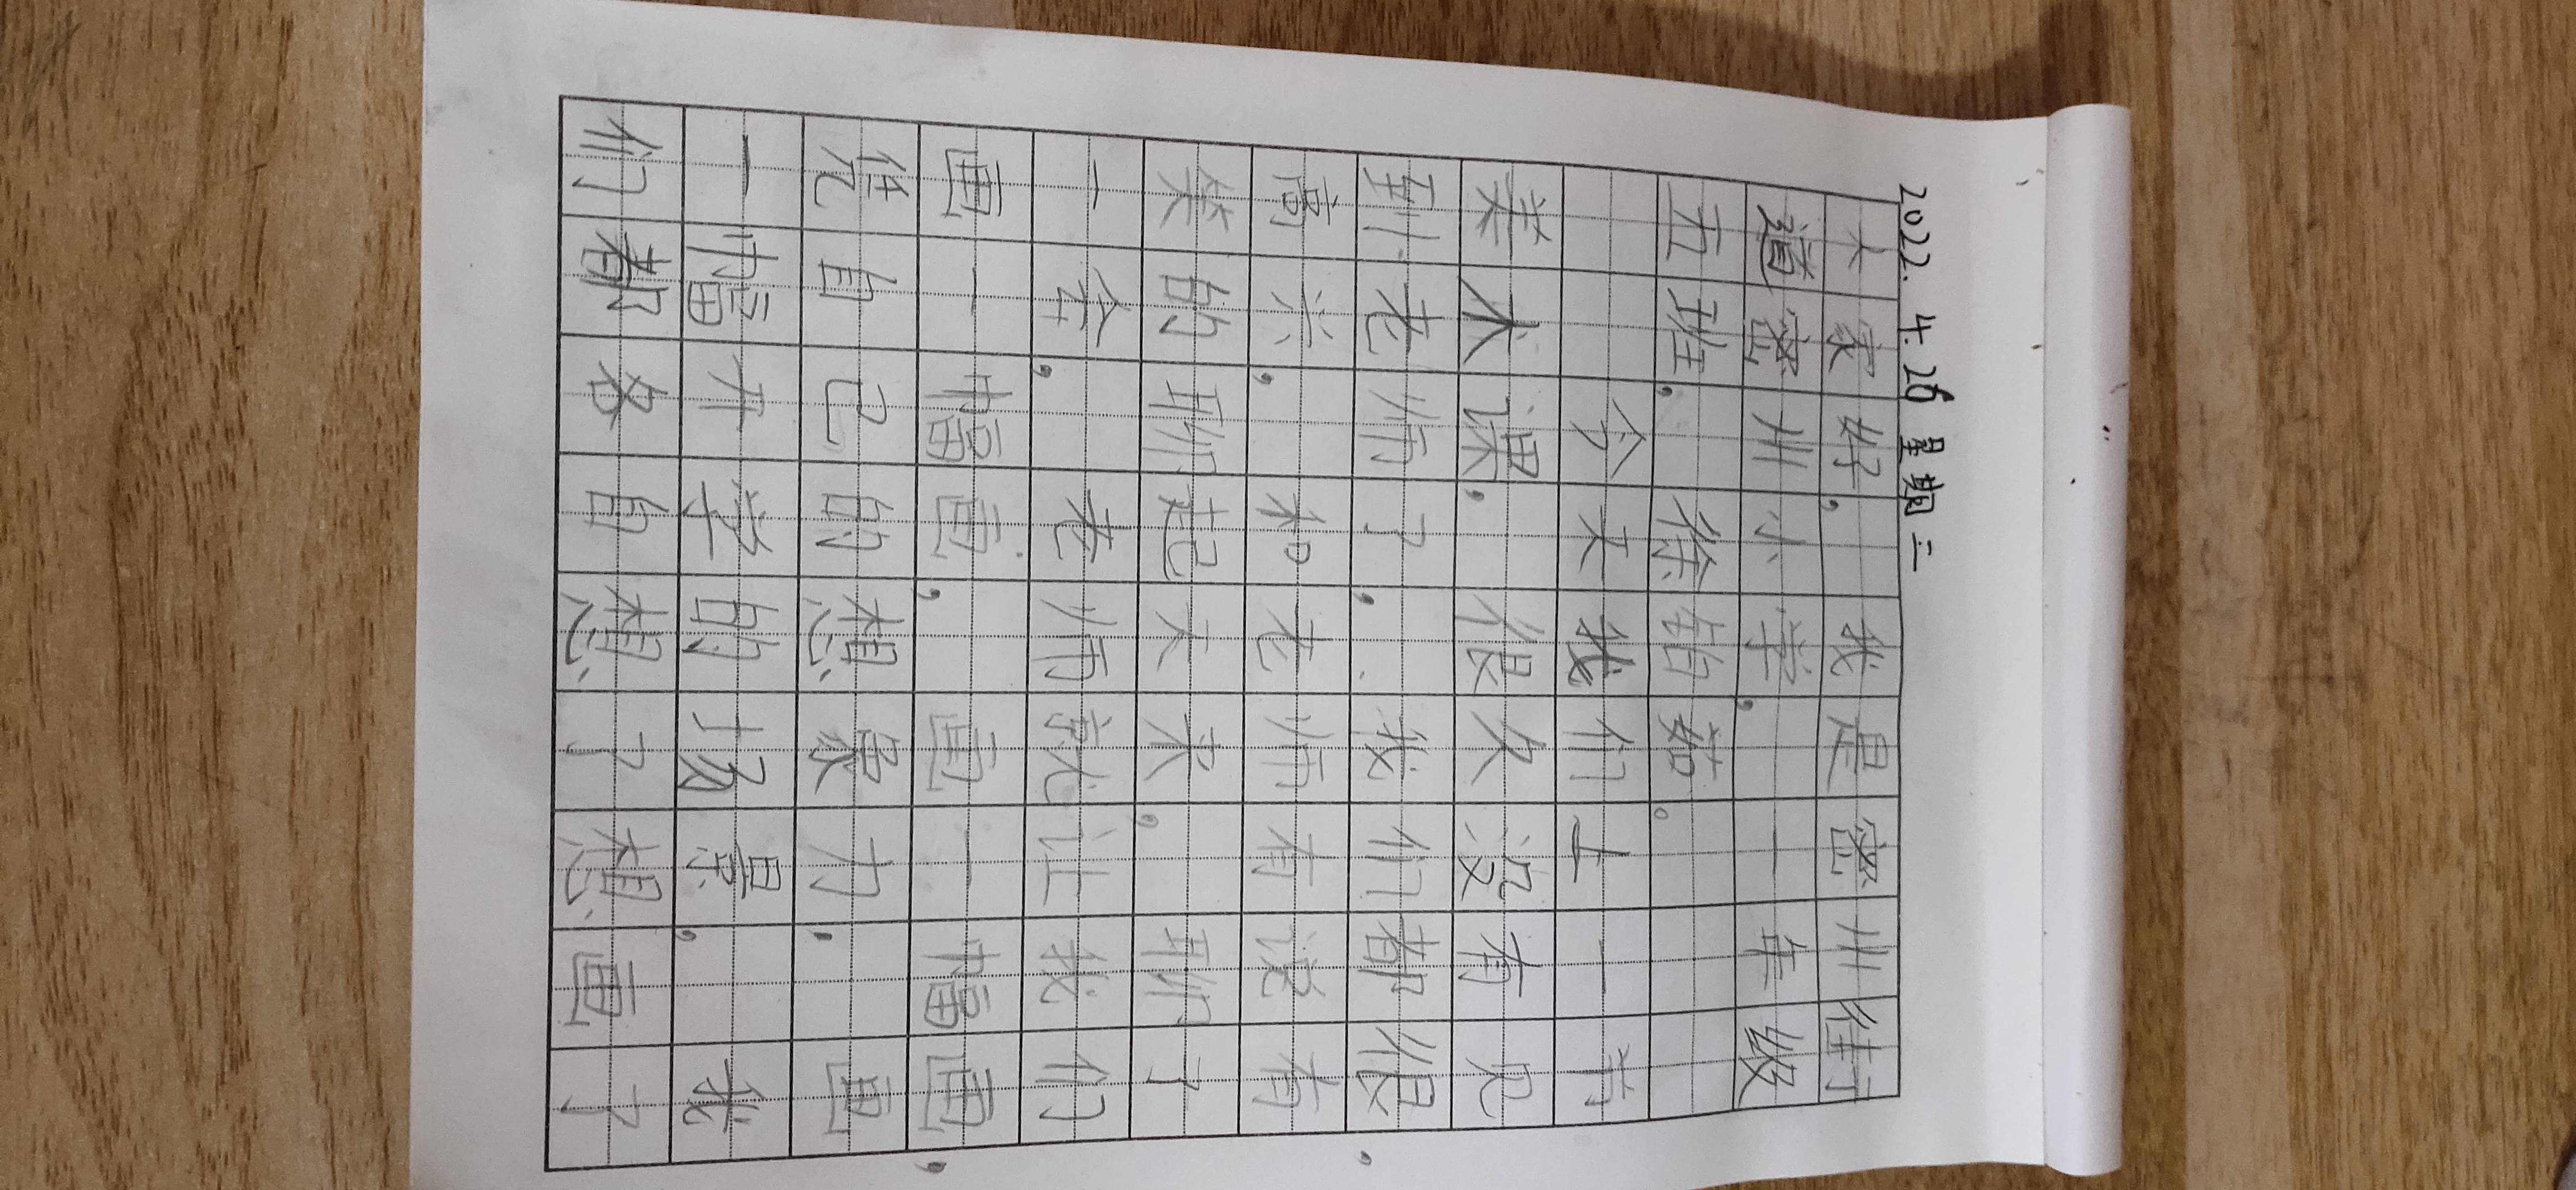 2022.4.26 星期二
大家好，我是密州街
道密州小学，一年级
五班，徐韵茹。
今天我们上一节
美术课，很久没有见
到老师了，我们都很，
高兴，和老师有说有
笑的聊起天来，聊了
一会，老师就让我们
画一幅画，画一幅画，
凭自己的想象力，画
一幅开学的场景，我
们都各自想了想画了